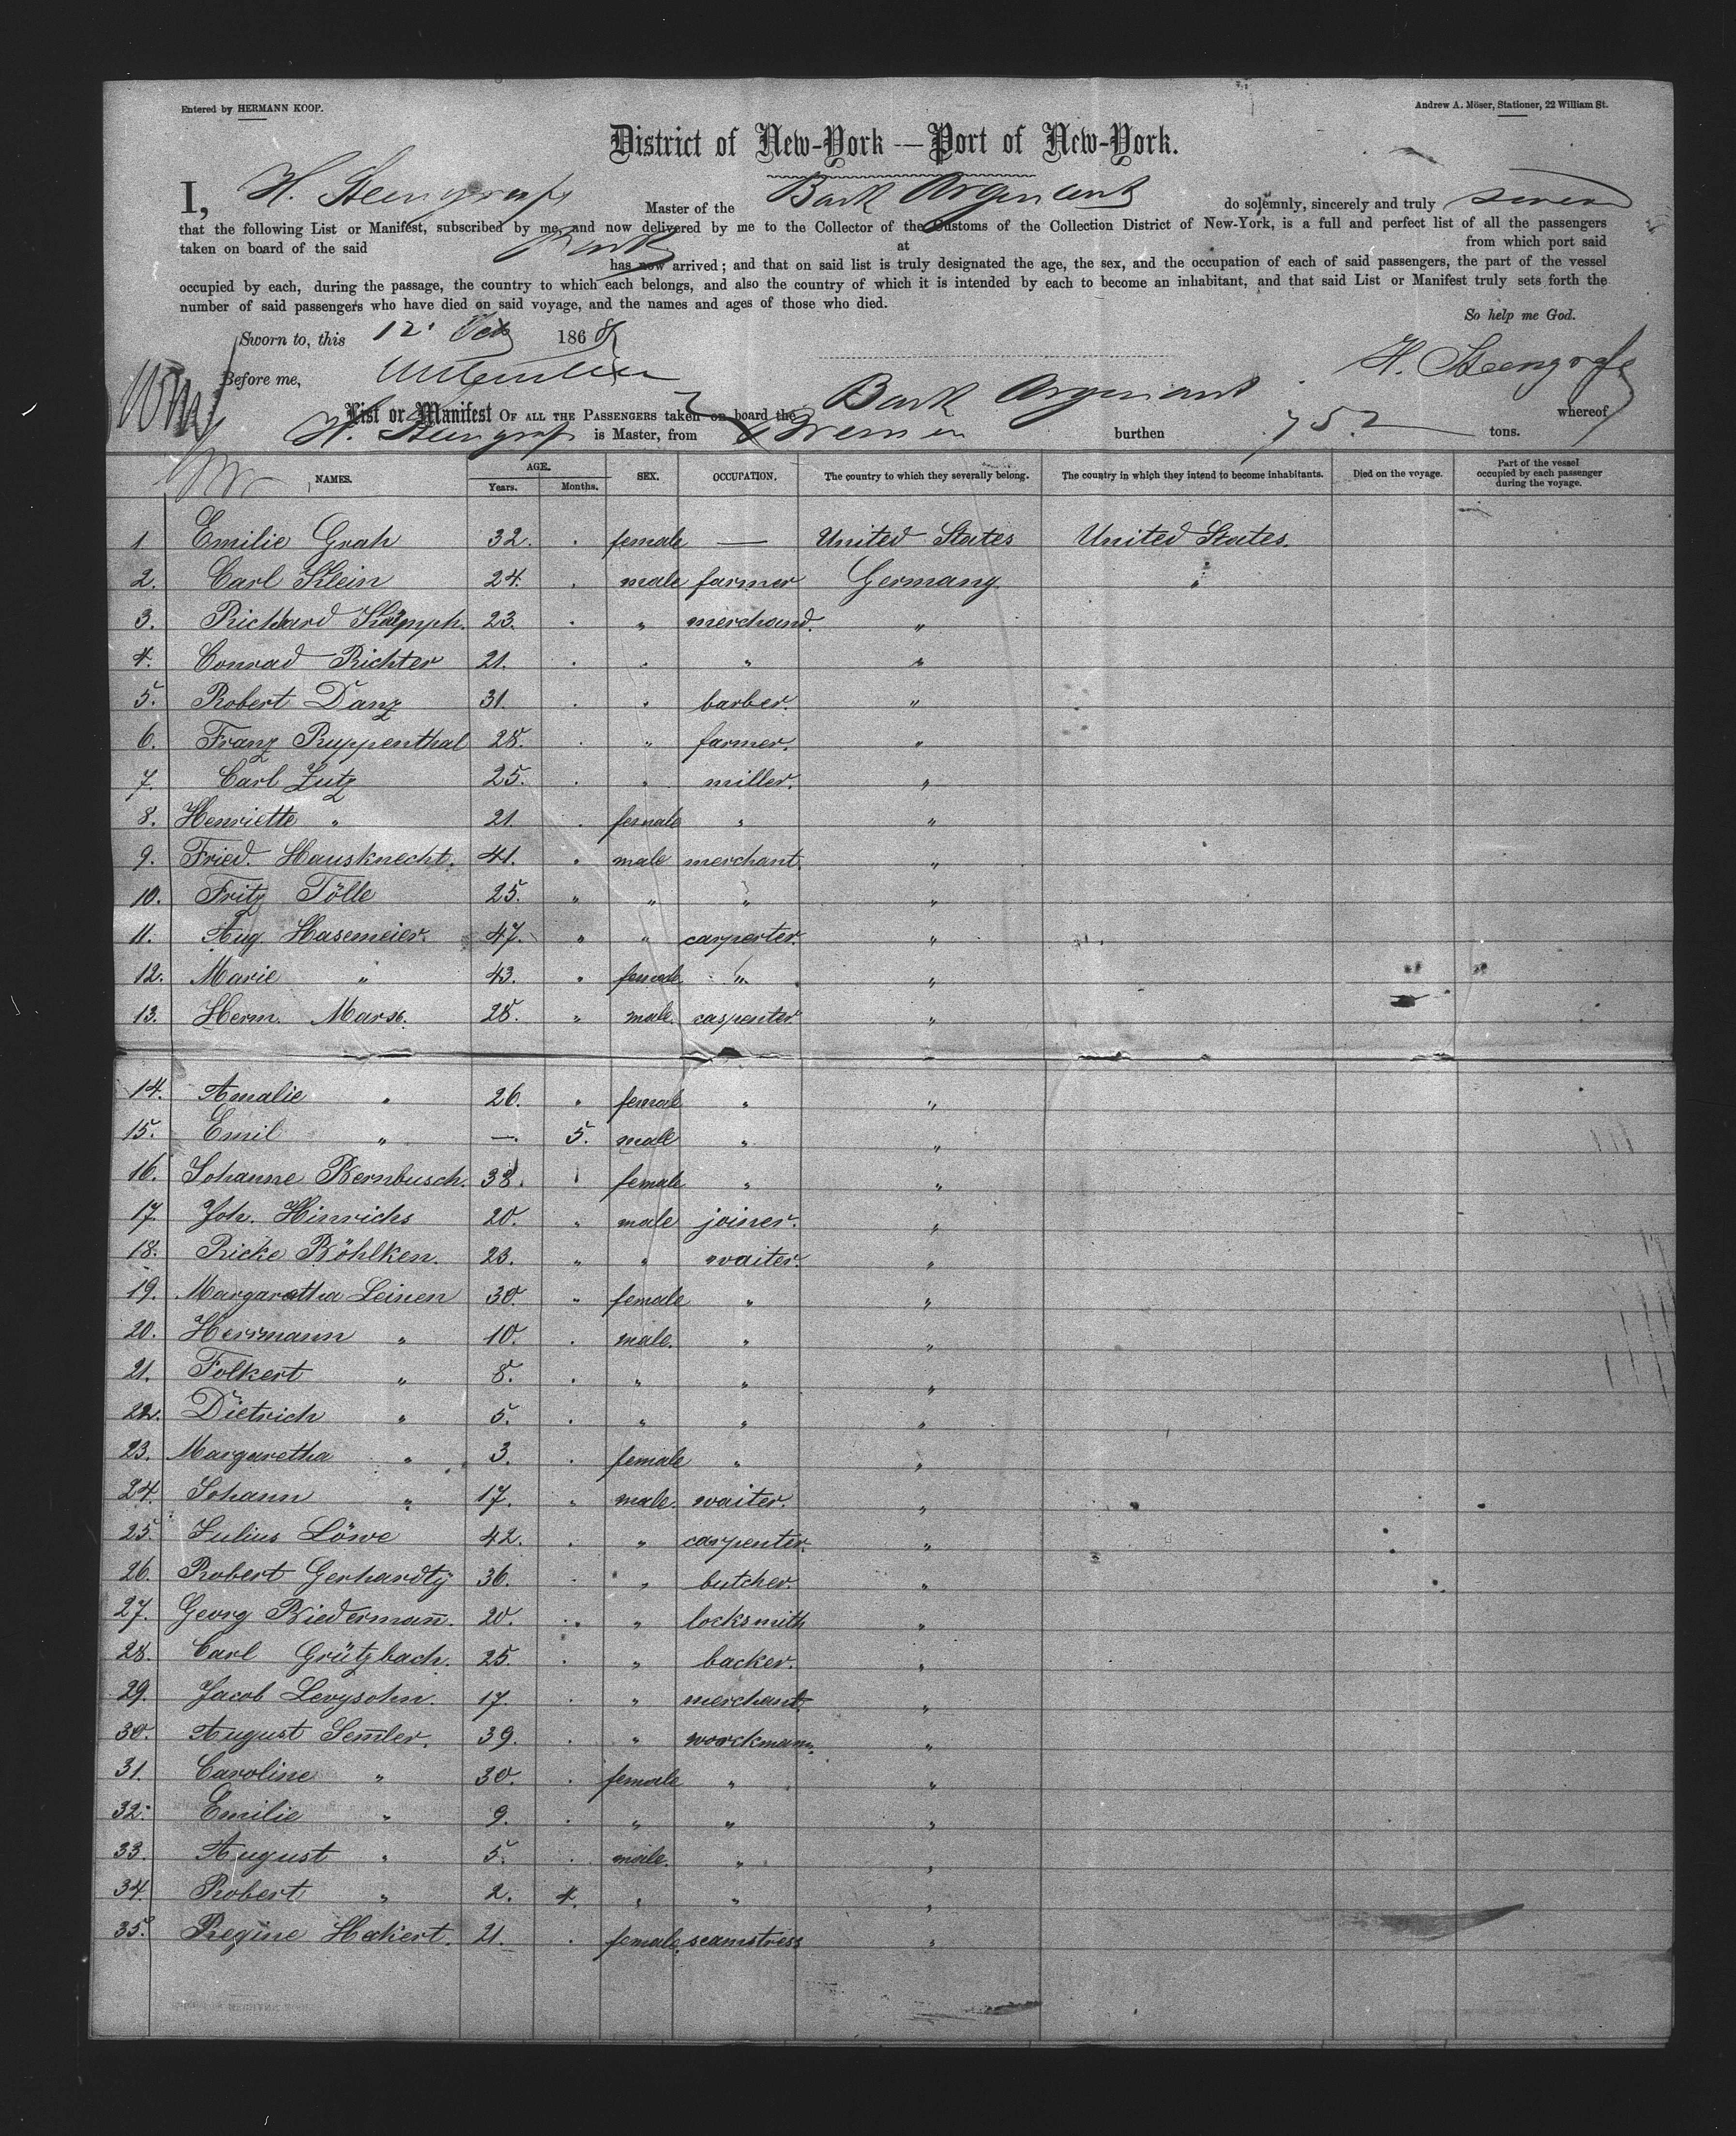 Entered by HERMANN KOOP.
Andrew A. Möser, Stationer, 22 William St.
District of New-York — Port of New-York.
I, H. Steengrafe Master of the Bark Argonaut do solemnly, sincerely and truly swear
that the following List or Manifest, subscribed by me, and now delivered by me to the Collector of the Customs of the Collection District of New-York, is a full and perfect list of all the passengers
taken on board of the said Bark at from which port said
has now arrived; and that on said list is truly designated the age, the sex, and the occupation of each of said passengers, the part of the vessel
occupied by each, during the passage, the country to which each belongs, and also the country of which it is intended by each to become an inhabitant, and that said List or Manifest truly sets forth the
number of said passengers who have died on said voyage, and the names and ages of those who died.
So help me God.
Sworn to, this 12 Oct 1868
H. Steengrafe
Before me,
List or Manifest OF ALL THE PASSENGERS taken on board the Bark Argonaut whereof
H. Steengrafe is Master, from Bremen burthen 752 tons.
NAMES. AGE. Years. Months. SEX. OCCUPATION. The country to which they severally belong. The country in which they intend to become inhabitants. Died on the voyage. Part of the vessel occupied by each passenger during the voyage.
1. Emilie Grah 32. female — United States United States.
2. Carl Klein 24. male farmer Germany. "
3. Richard Kämpph. 23. " merchand. "
4. Conrad Richter 21. " " "
5. Robert Danz 31. " barber. "
6. Franz Ruppenthal 28. " farmer. "
7. Carl Lutz 25. " miller. "
8. Henriette " 21. female " "
9. Fried. Hausknecht. 41. male merchant. "
10. Fritz Tölle 25. " " " "
11. Aug. Hasemeier. 47. " " carpenter. "
12. Marie " 43. " female " "
13. Herm. Marx. 28. " male. carpenter "
14. Amalie " 26. " female " "
15. Emil " —. 5. male " "
16. Johanne Bernbusch. 38. female " "
17. Joh. Hinrichs 20. " male joiner. "
18. Ricke Böhlken. 23. " " waiter. "
19. Margaretha Leinen 30. " female " "
20. Herrmann " 10. male. " "
21. Folkert " 8. " " "
22. Dietrich " 5. " " "
23. Margaretha " 3. female " "
24. Johann " 17. male. waiter. "
25. Julius Löwe 42. " carpenter. "
26. Robert Gerhardty 36. " butcher. "
27. Georg Biedermañ. 20. " locksmith "
28. Carl Grützbach. 25. " backer. "
29. Jacob Levysohn. 17. " merchant. "
30. August Sem̄ler. 39. " workman. "
31. Caroline " 30. female " "
32. Emilie " 9. " " "
33. August " 5. male. " "
34. Robert " 2. 4. " " "
35. Regine Hakert. 21. female. seamstress "